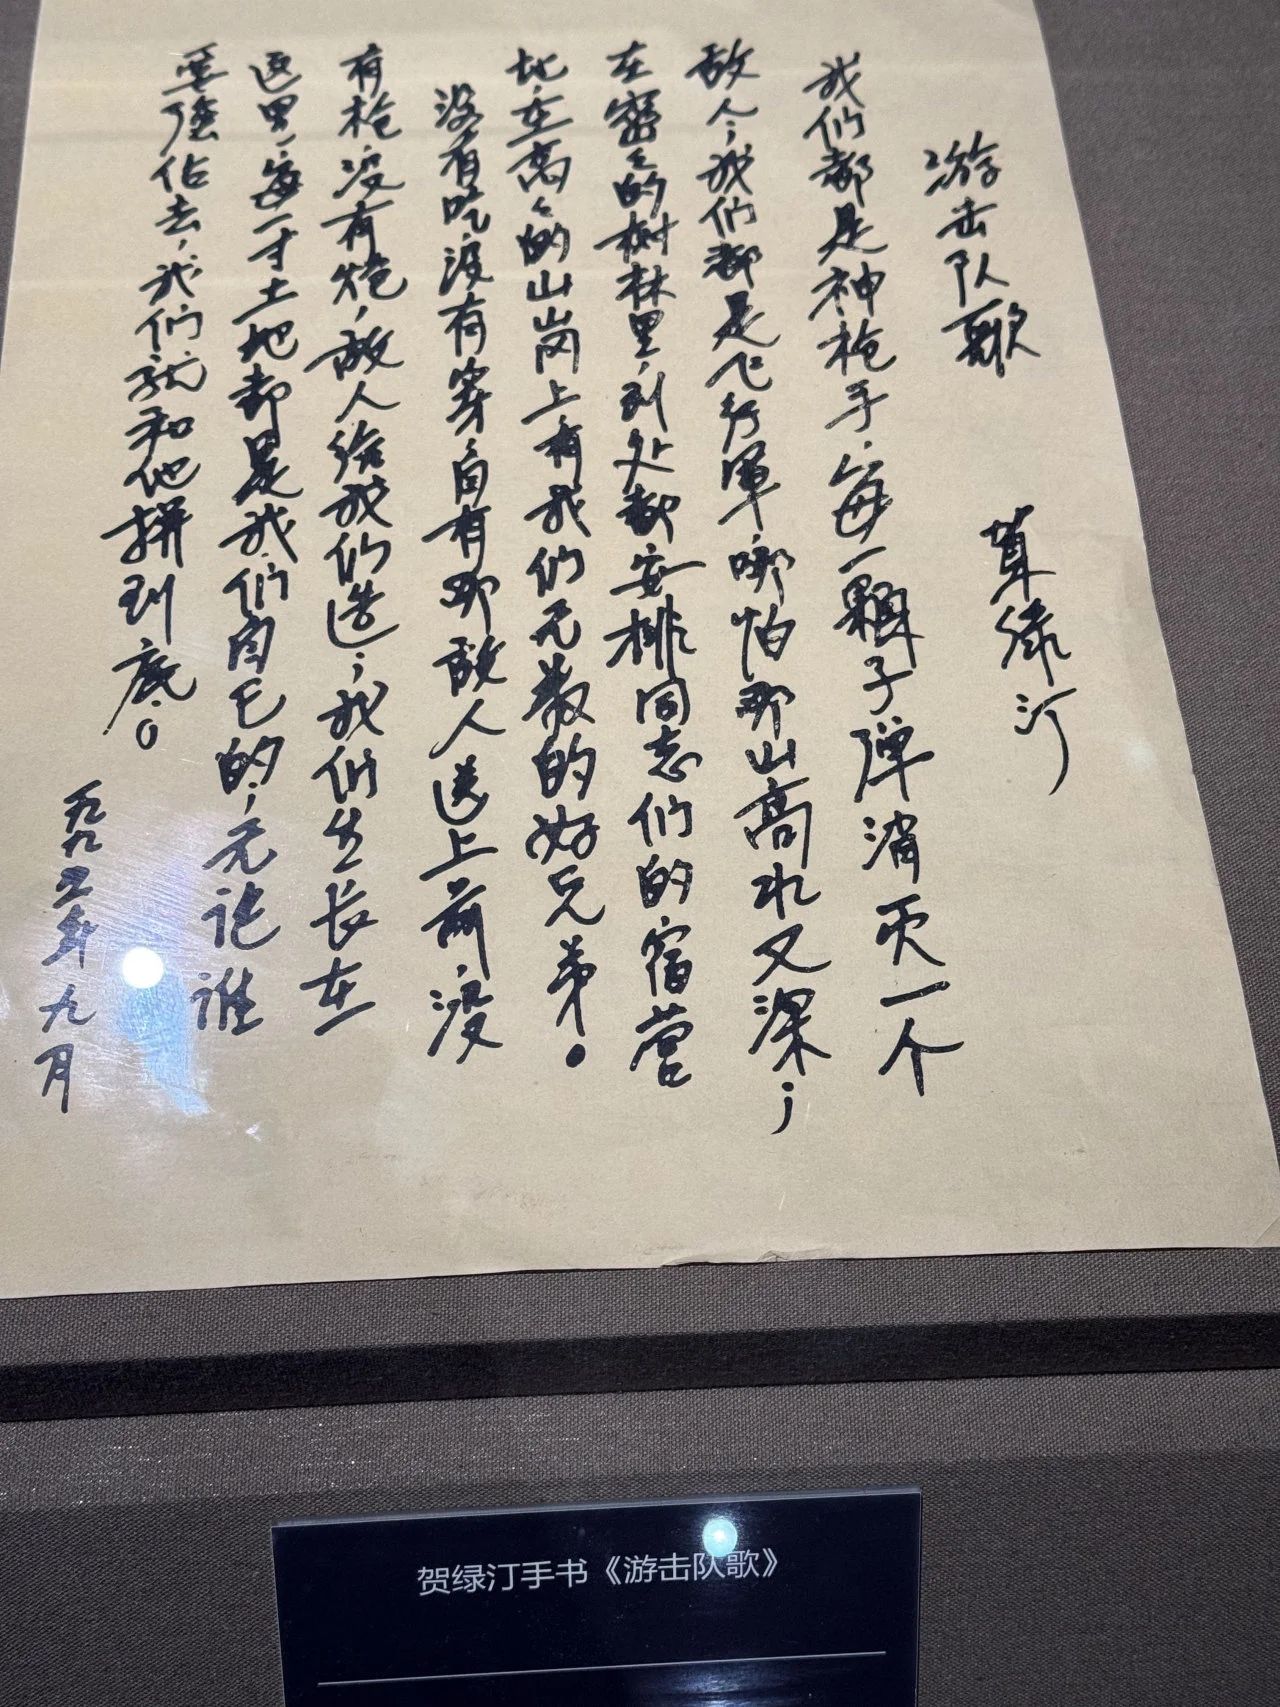 游击队歌
贺绿汀
我们都是神枪手,每一颗子弹消灭一个
敌人;我们都是飞行軍哪怕那山高水又深;
在密々的树林里,到处都安排同志们的宿营
地,在高々的山岗上有我们无数的好兄弟。
没有吃,没有穿,自有那敌人送上前,没
有枪没有炮,敌人给我们造;我们生长在
这里,每一寸土地都是我们自己的;无论谁
要强佔去,我们就和他拼到底。
一九九五年九月
贺绿汀手书《游击队歌》